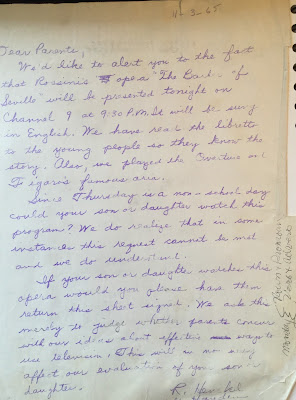 11-3-65
Dear Parents,
We'd like to alert you to the fact
that Rossini's opera "The Barber of
Seville" will be presented tonight on
Channel 9 at 9:30 P.M. It will be sung
in English. We have read the libretto
to the young people so they know the
story. Also, we played the Overture and
Figaro's famous aria.
Since Thursday is a non-school day
could your son or daughter watch this
program? We do realize that in some
instances this request cannot be met
and we do understand.
If your son or daughter watches this
opera would you please have them
return this sheet signed. We ask this
merely to judge whether parents concur
with our ideas about effective ways to
use television. This will in no way
affect our evaluation of your son or
daughter.
R.
Monday